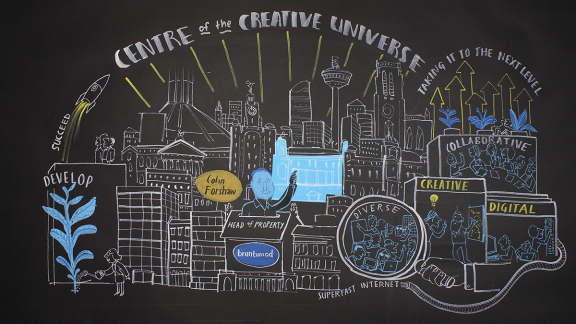 CENTRE of the CREATIVE UNIVERSE
TAKING IT TO THE NEXT LEVEL
SUCCEED
COLLABORATIVE
DEVELOP
Colin
Forshaw
CREATIVE
DIGITAL
DIVERSE
HEAD of PROPERTY
bruntwood
SUPERFAST INTERNET